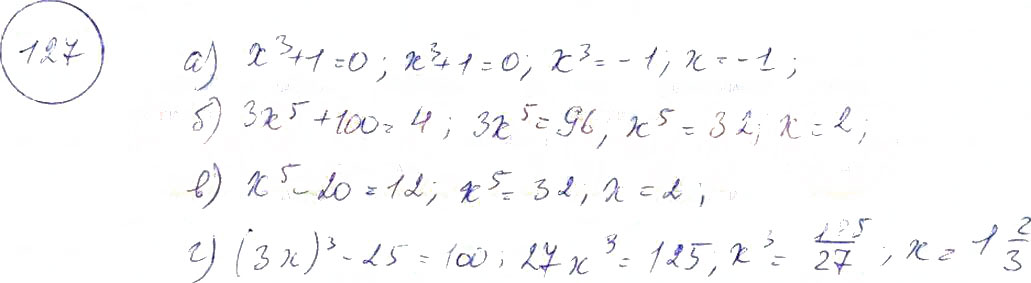 127
а) x³+1=0; x³+1=0; x³=-1; x=-1;
б) 3x⁵+100=4; 3x⁵=96, x⁵=32; x=2;
в) x⁵-20=12; x⁵=32; x=2;
г) (3x)³-25=100; 27x³=125; x³=125/27; x=1 2/3